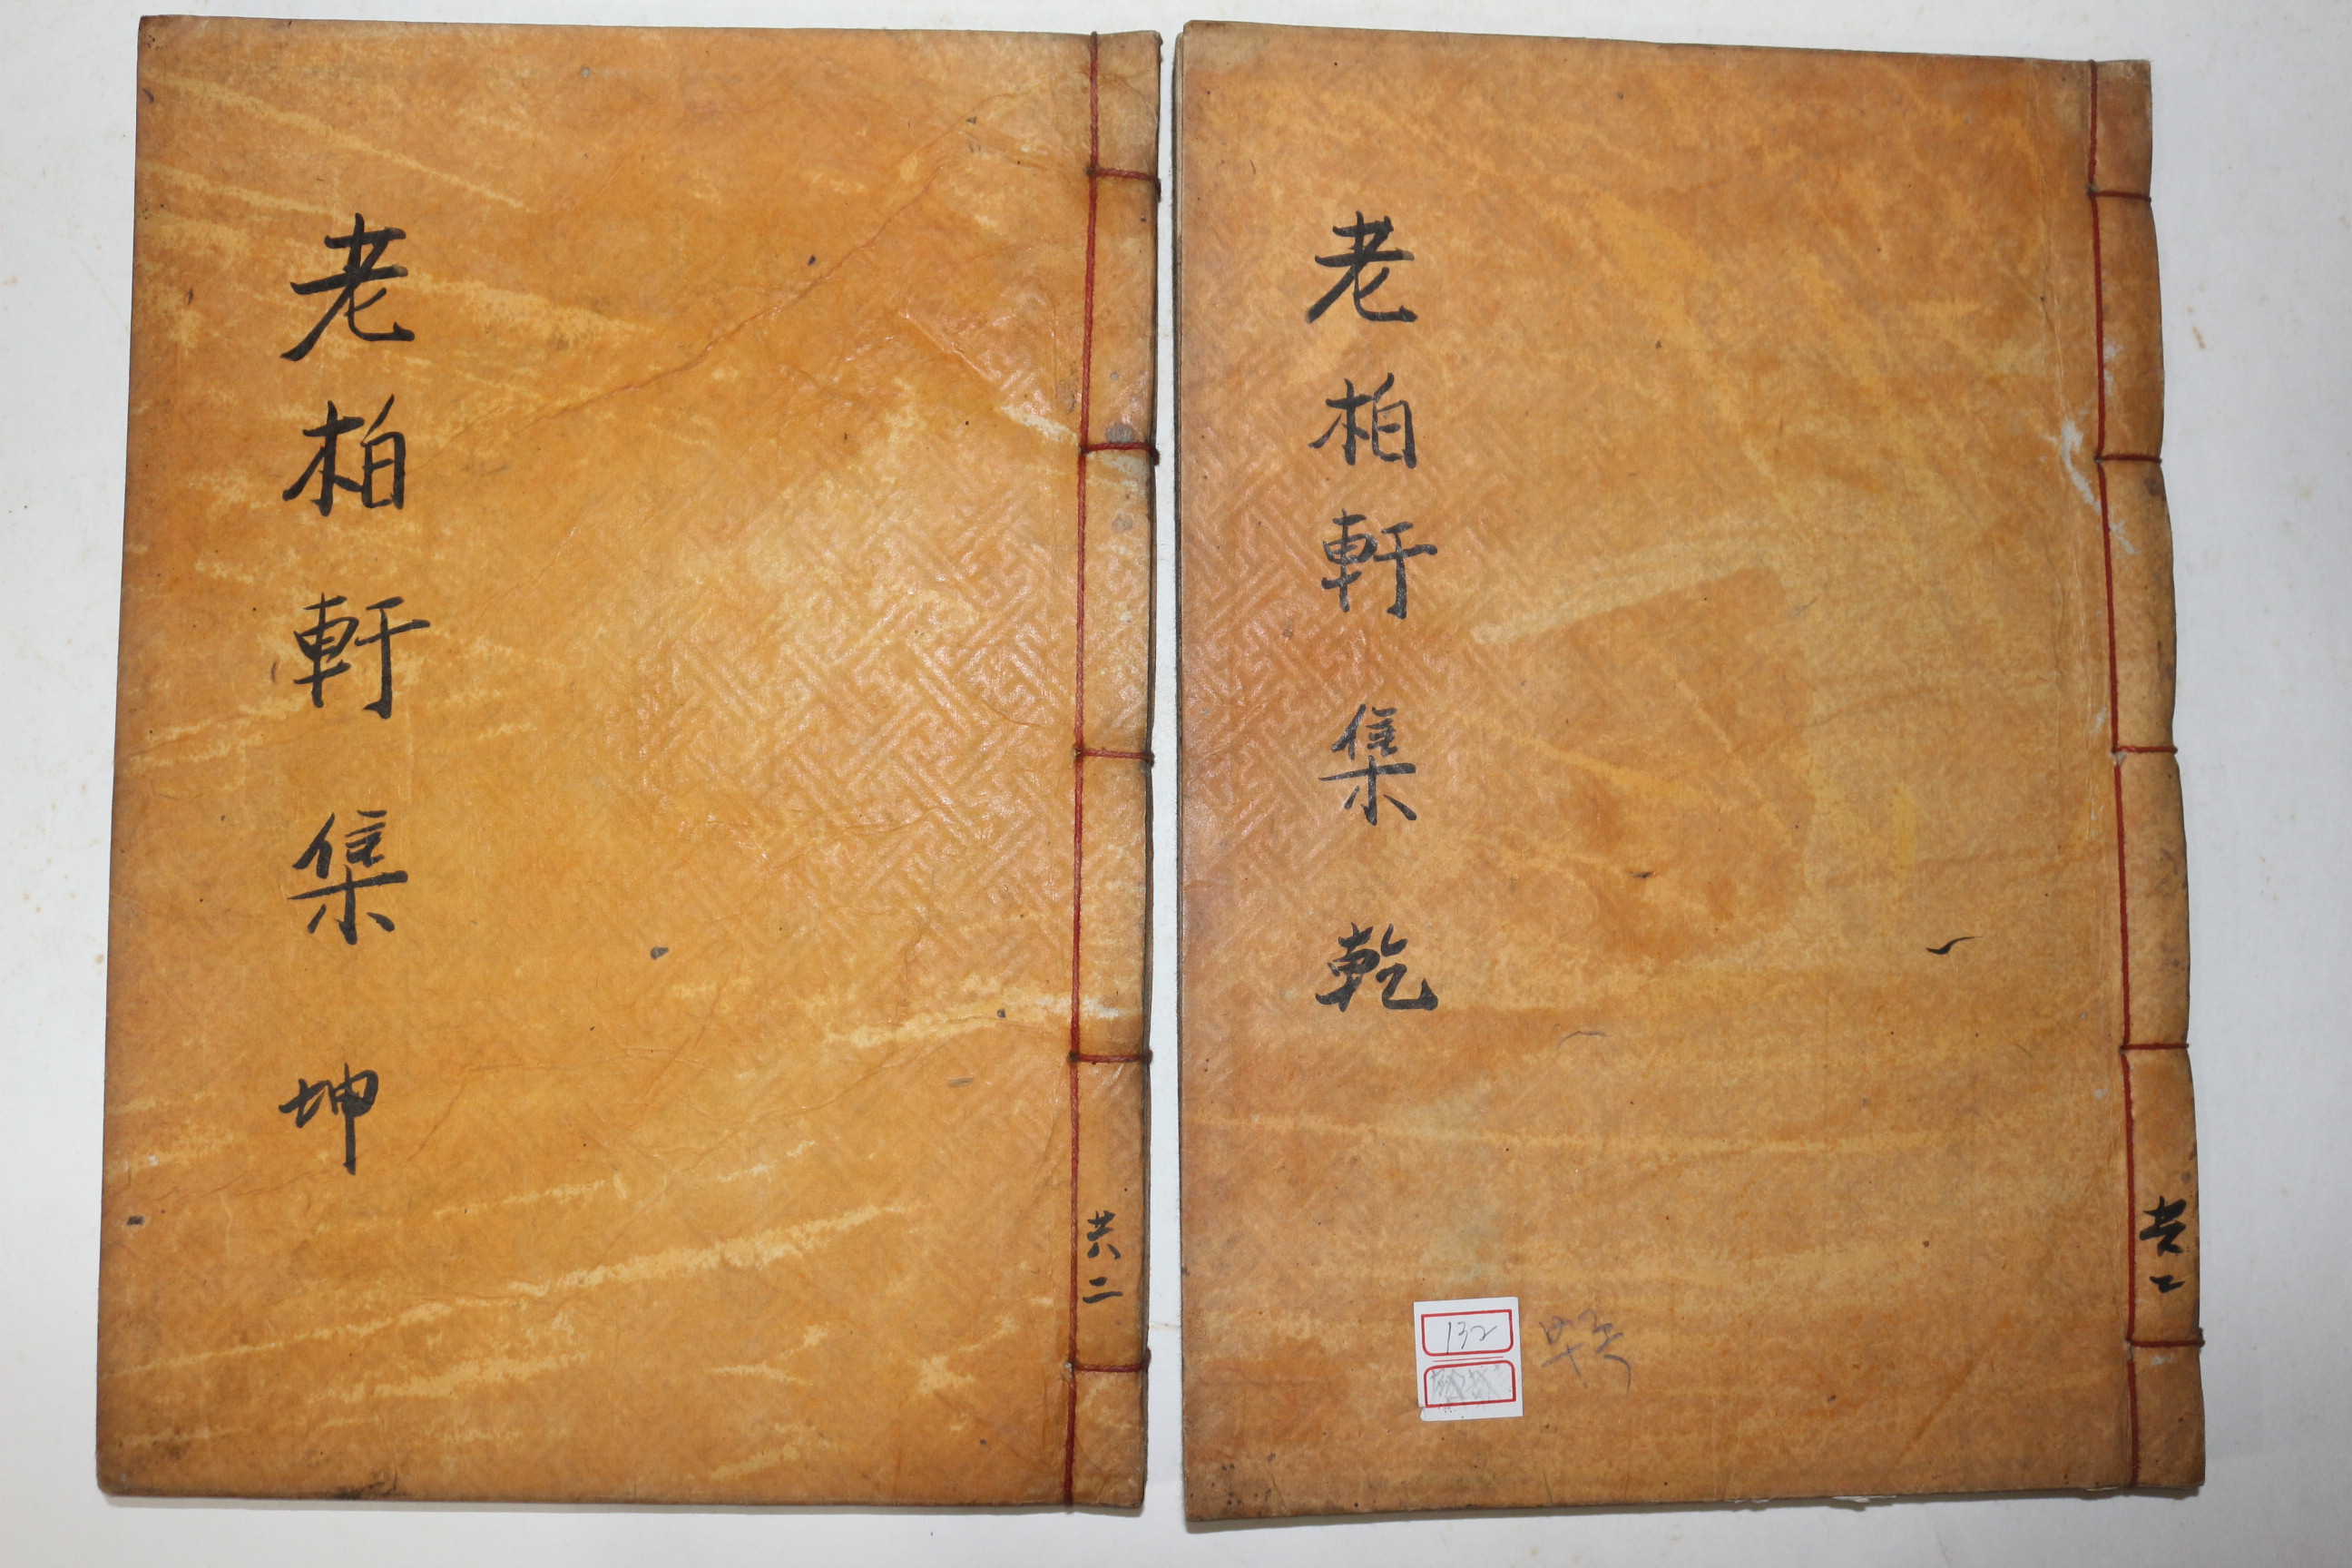 老柏軒集 乾
共二
132
老柏軒集 坤
共二